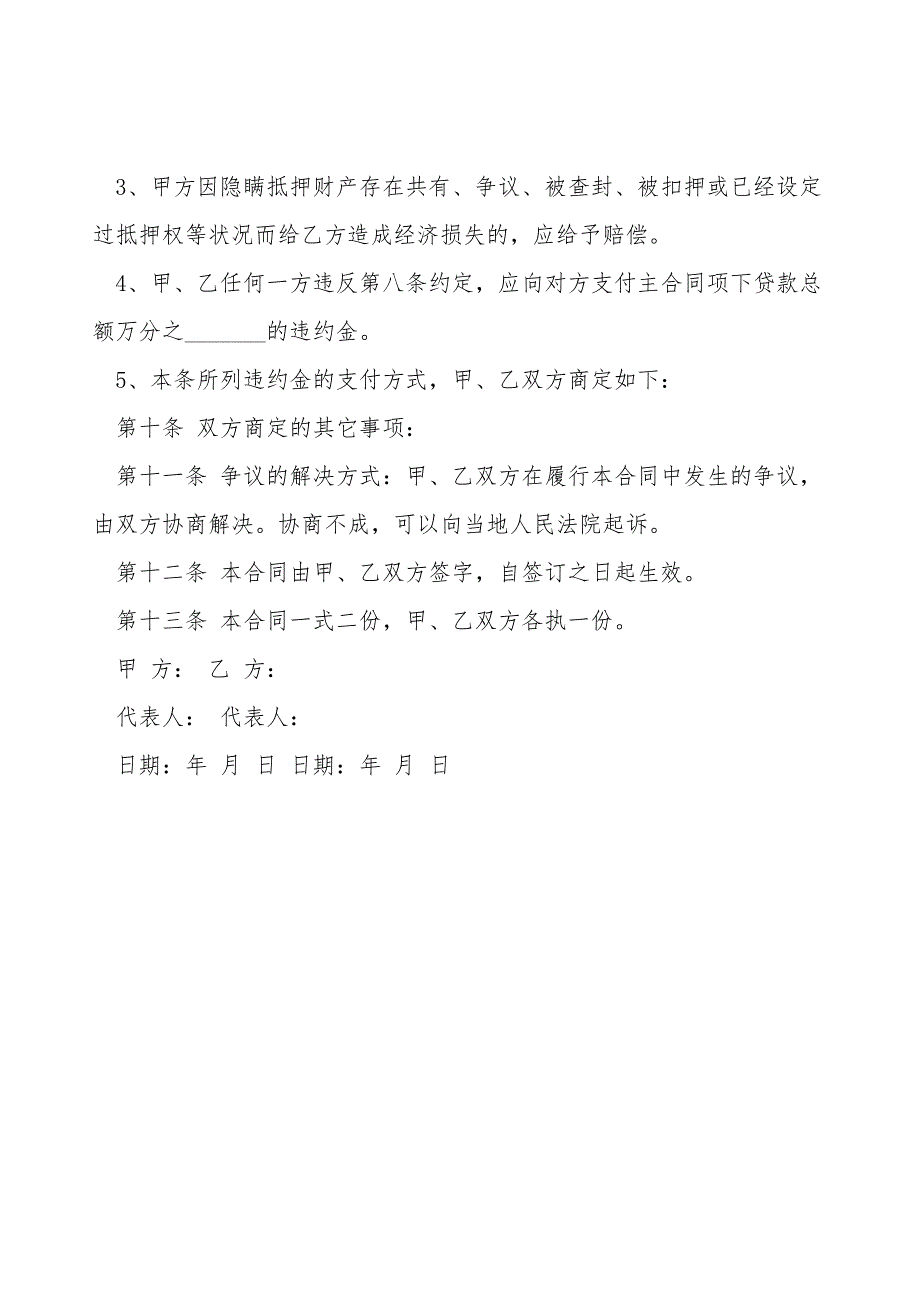 3、甲方因隐瞒抵押财产存在共有、争议、被查封、被扣押或已经设定
过抵押权等状况而给乙方造成经济损失的，应给予赔偿。
4、甲、乙任何一方违反第八条约定，应向对方支付主合同项下贷款总
额万分之_______的违约金。
5、本条所列违约金的支付方式，甲、乙双方商定如下：
第十条 双方商定的其它事项：
第十一条 争议的解决方式：甲、乙双方在履行本合同中发生的争议，
由双方协商解决。协商不成，可以向当地人民法院起诉。
第十二条 本合同由甲、乙双方签字，自签订之日起生效。
第十三条 本合同一式二份，甲、乙双方各执一份。
甲 方： 乙 方：
代表人： 代表人：
日期：年 月 日 日期：年 月 日